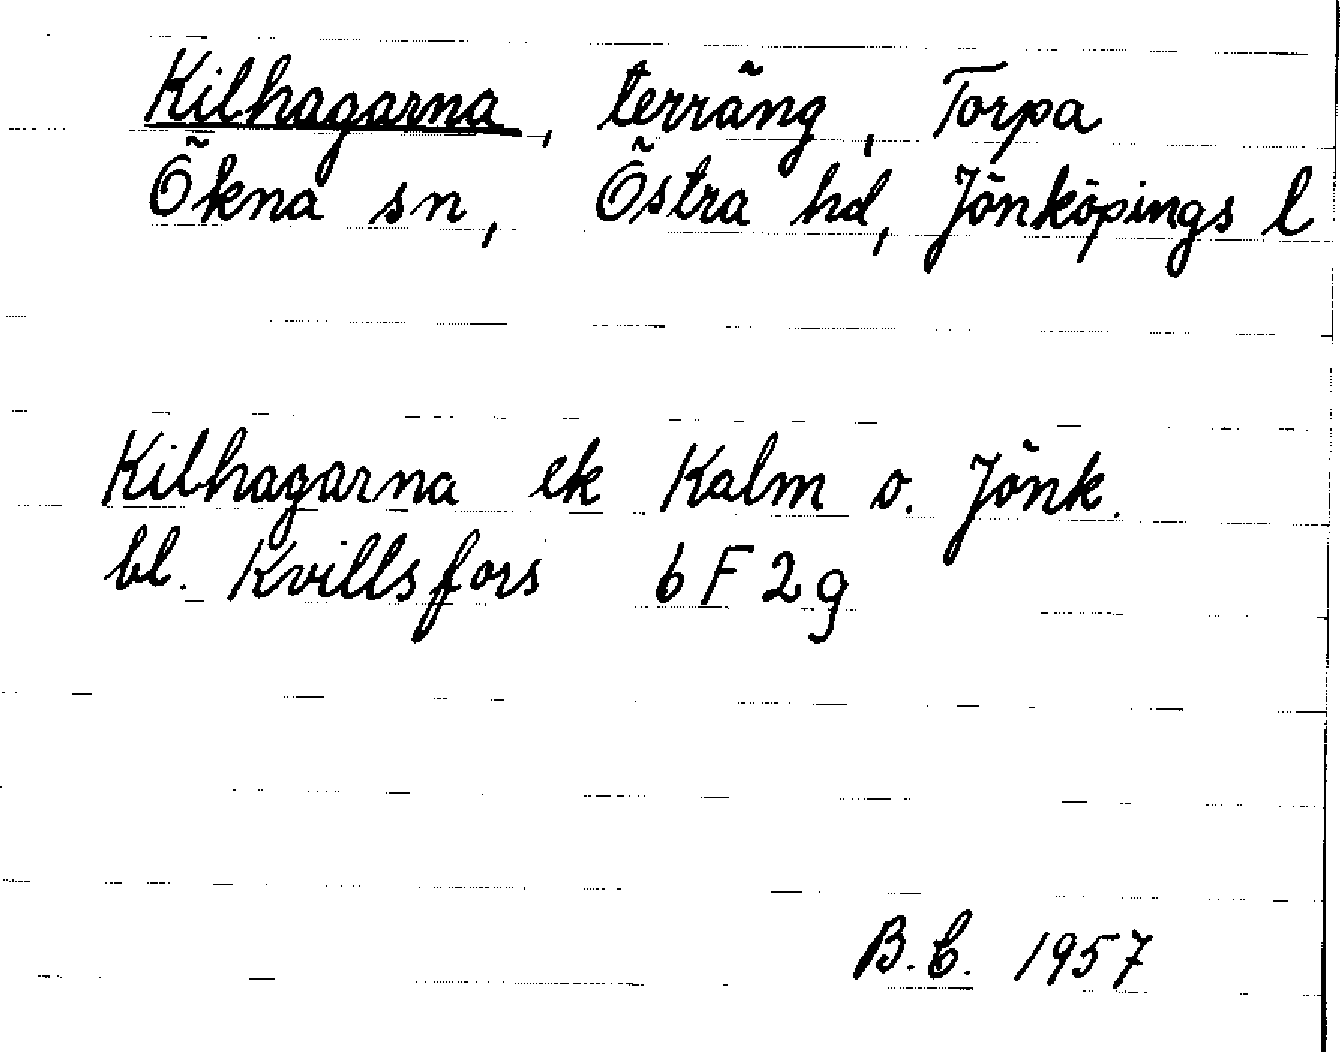 Kilhagarna, terräng, Torpa
Ökna sn, Östra hd, Jönköpings l
Kilhagarna ek Kalm o. Jönk.
bl. Kvillsfors 6F2g
B.E. 1957